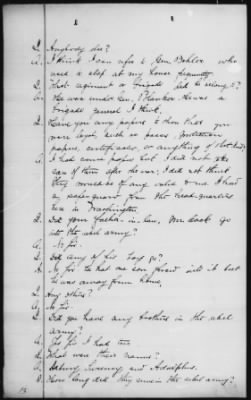 Q. Anybody else?
A. I think I can refer to Gen. Bohlen who
used to stop at my house frequently.
Q. What regiment or brigade did he belong to?
A. He was under Gen. Blenker. He was a
Brigade general I think.
Q. Have you any papers to show that you
were loyal, such as passes, protection
papers, certificates, or anything of that kind?
A. I had some papers but I did not take
care of them after the war; I did not think
they would be of any value to me. I had
a safe guard from the head-quarters
here in Washington.
Q. Did your father-in-law, Mr. go
into the rebel army?
A. No sir.
Q. Did any of his boys go?
A. No sir he had one son forced into it but
he was away from home.
Q. Any others?
A. No sir.
Q. Did you have any brothers in the rebel
army?
A. Yes sir I had two.
Q. What were their names?
A. and Adolphus.
Q. How long did they serve in the rebel army?